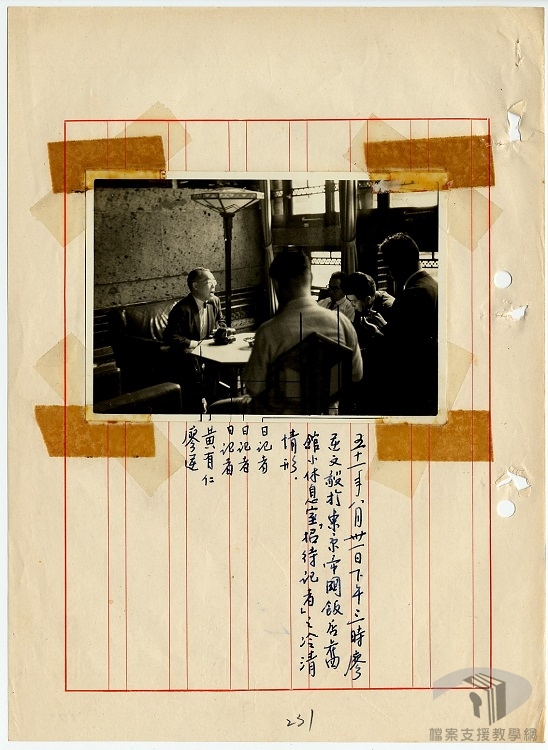 五十一年八月卅一日下午三時廖
逆文毅於東京帝國飯店舊
館小休息室「招待記者」之冷清
情形.
日記者
日記者
日記者
黃有仁
廖逆
檔案支援教學網